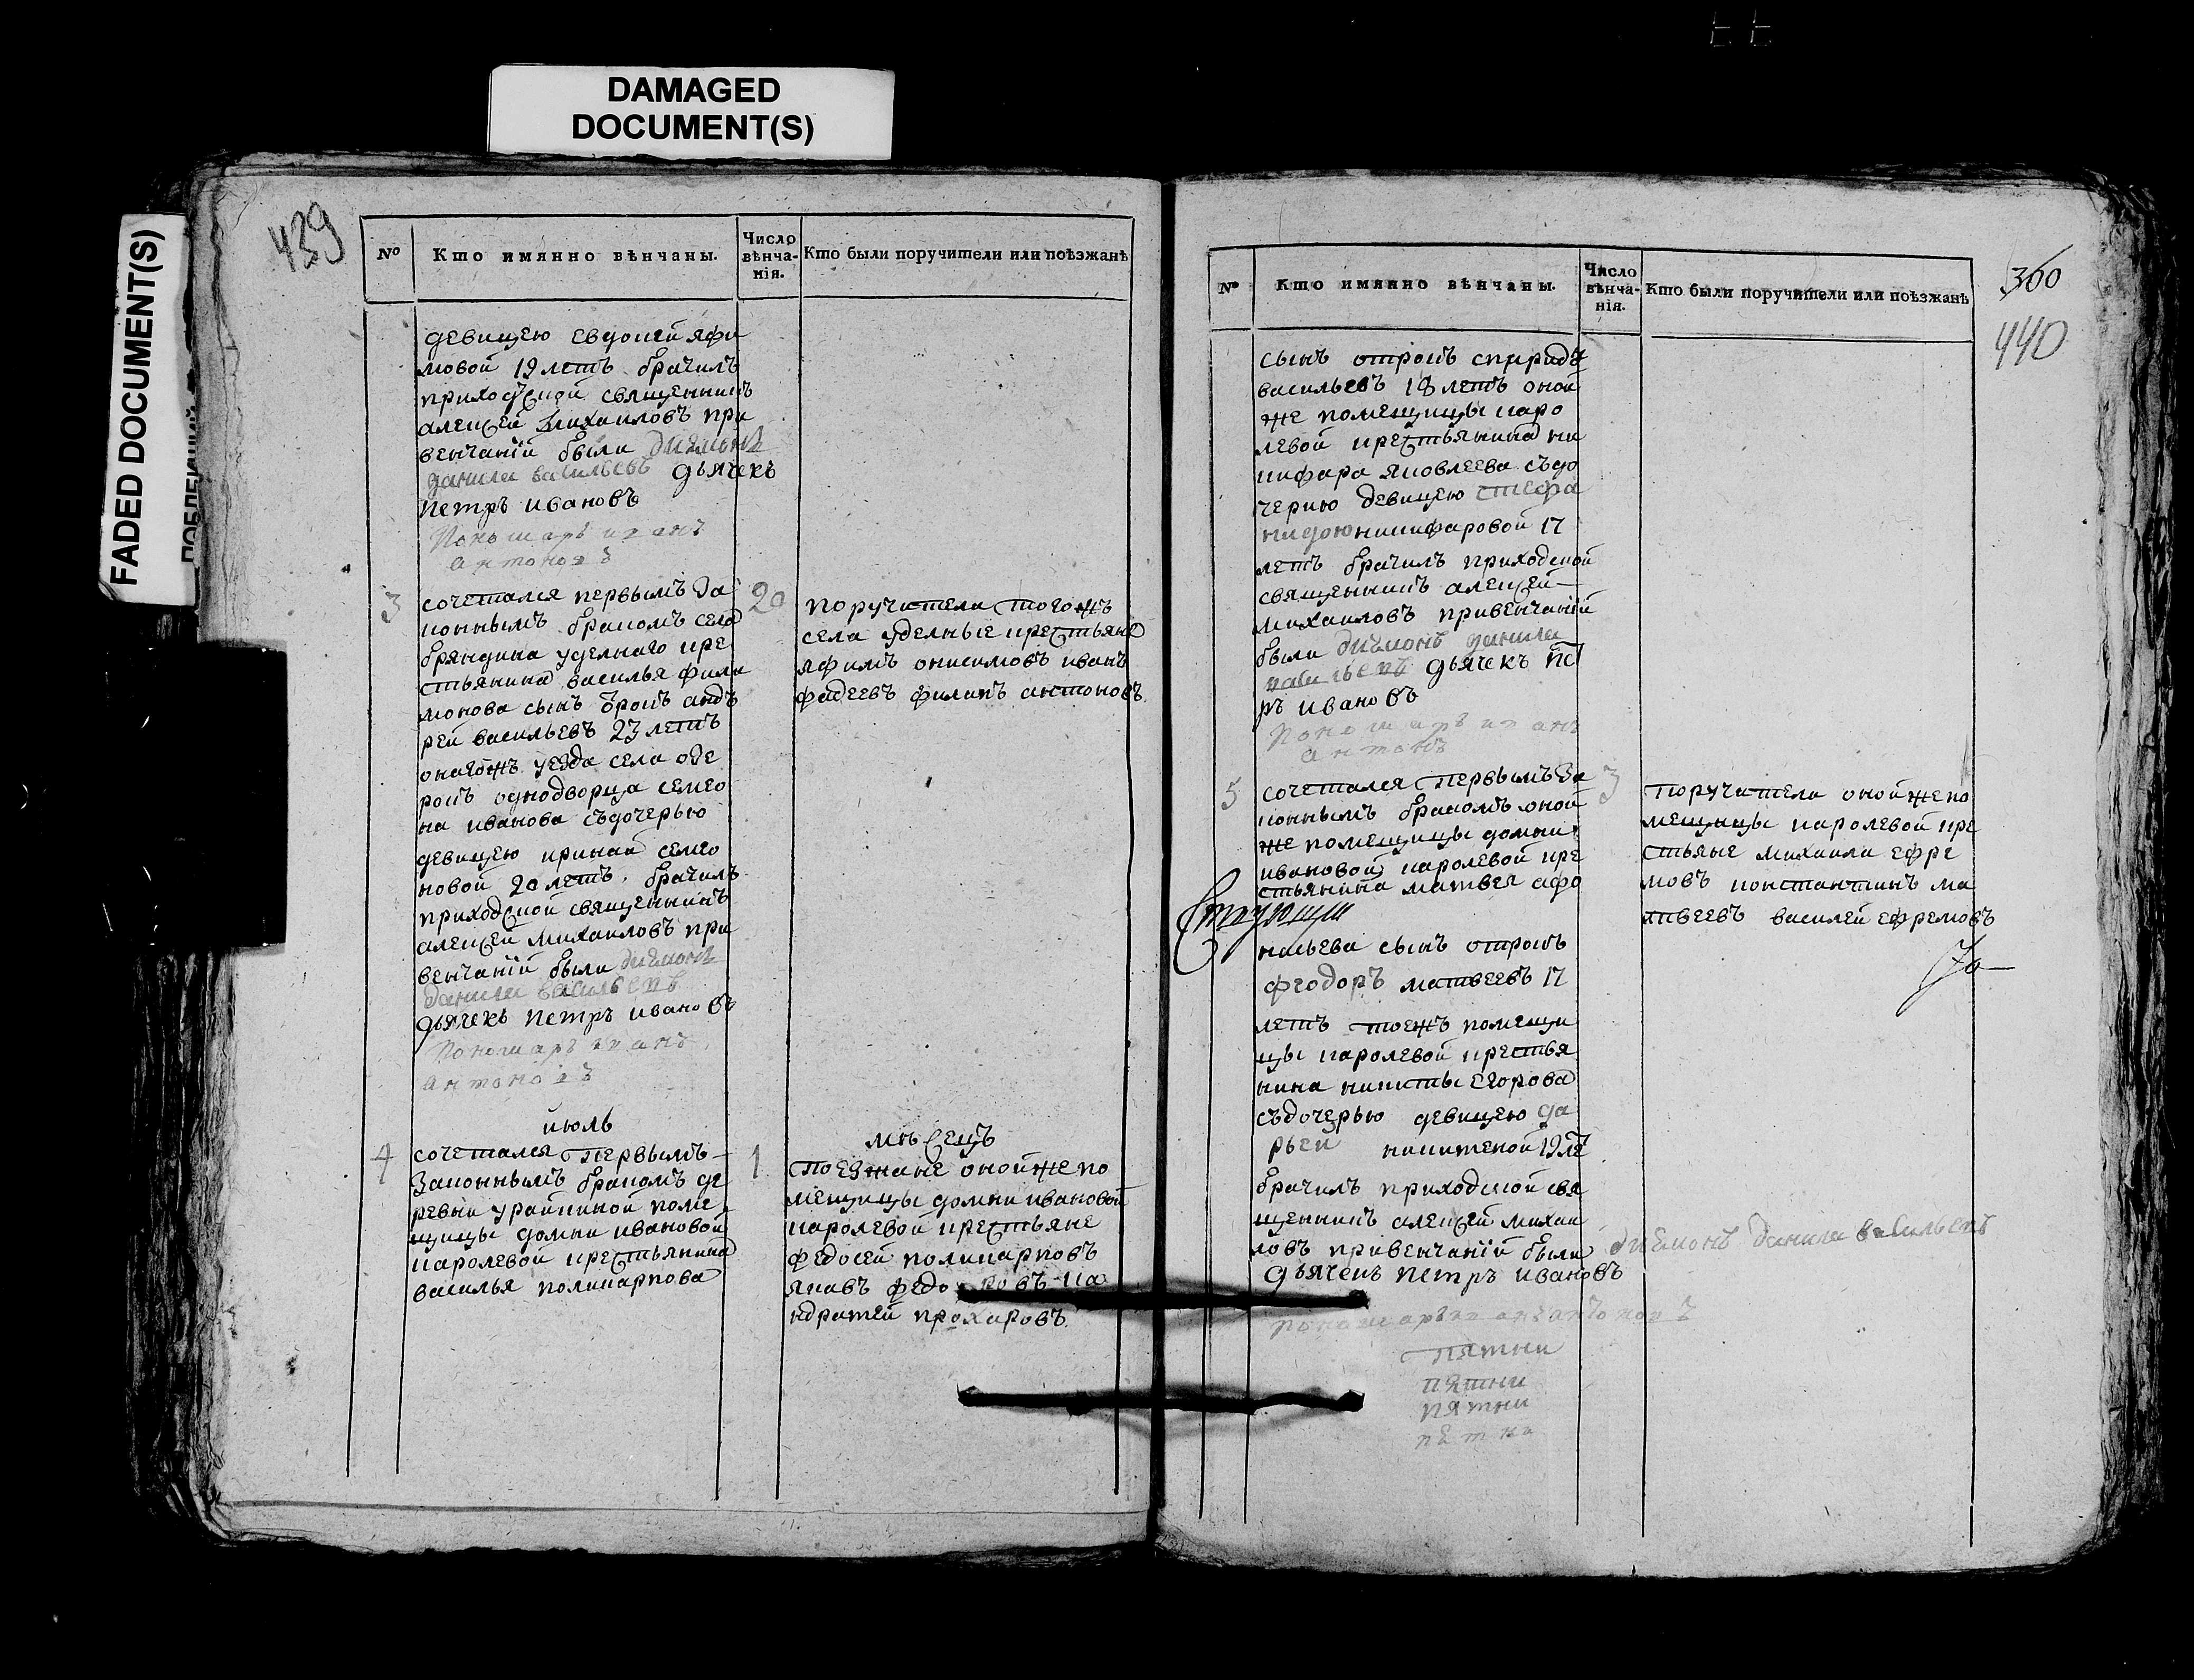 DAMAGED
DOCUMENT(S)
FADED DOCUMENT(S)
439
№
Кто имянно вѣнчаны.
Число
вѣнча-
нія.
Кто были поручители или поѣзжанѣ
девицею евдокией яфи
мовой 19 летъ брачилъ
приходской священникъ
алексей михаиловъ при
венчаніи были дияконъ
данила васильевъ дьячекъ
Петръ ивановъ
Пономарь иванъ
антоновъ
3
сочетался первымъ за
коннымъ бракомъ села
бряндина уделнаго кре
стьянина василья фили
монова сынъ отрокъ анд
рей васильевъ 23 летъ
онагожъ уезда села озе
рокъ однодворца семео
на иванова съдочерью
девицею ириной семео
новой 20 летъ брачилъ
приходской священникъ
алексей михаиловъ при
венчаніи были дияконъ
данила васильевъ
дьячекъ Петръ ивановъ
Пономарь иванъ
антоновъ
20
поручители тогожъ
села уделные крестьяне
яфимъ онисимовъ иванъ
фадеевъ филипъ антоновъ
июль
мѣсецъ
4
сочетался первымъ
законнымъ бракомъ де
ревни урайкиной поме
щицы домни ивановой
каролевой крестьянина
василья поликарпова
1
поезжане оной же по
мещицы домни ивановой
каролевой крестьяне
федосей поликарповъ
яковъ федоровъ ка
ндратей прохаровъ
360
440
№
Кто имянно вѣнчаны.
Число
вѣнча-
нія.
Кто были поручители или поѣзжанѣ
сынъ отрокъ спиридо
васильевъ 18 летъ оной
же помещицы каро
левой крестьянина ни
кифара яковлеева съдо
черию девицею стефа
нидою никифаровой 17
летъ брачилъ приходской
священникъ алексей
михаиловъ привенчаніи
были дияконъ данила
васильевъ дьячекъ пет
ръ ивановъ
Пономарь иванъ
антонъ
5
сочетался первымъ за
коннымъ бракомъ оной
же помещицы домни
ивановой каролевой кре
стьянина матвея афо
насьева сынъ отрокъ
феодоръ матвеевъ 17
летъ тоежъ помещи
цы каролевой крестья
нина никиты егорова
съдочерью девицею да
рьей никитеной 19 ле
брачилъ приходской свя
щенникъ алексей михаи
ловъ привенчаніи были дияконъ данила васильевъ
дьячекъ Петръ ивановъ
Пономарь иванъ антоновъ
пятни
пятни
пятни
3
поручители оной же по
мещицы каролевой кре
стьяне михаила ефре
мовъ константинъ ма
твеевъ василей ефремовъ